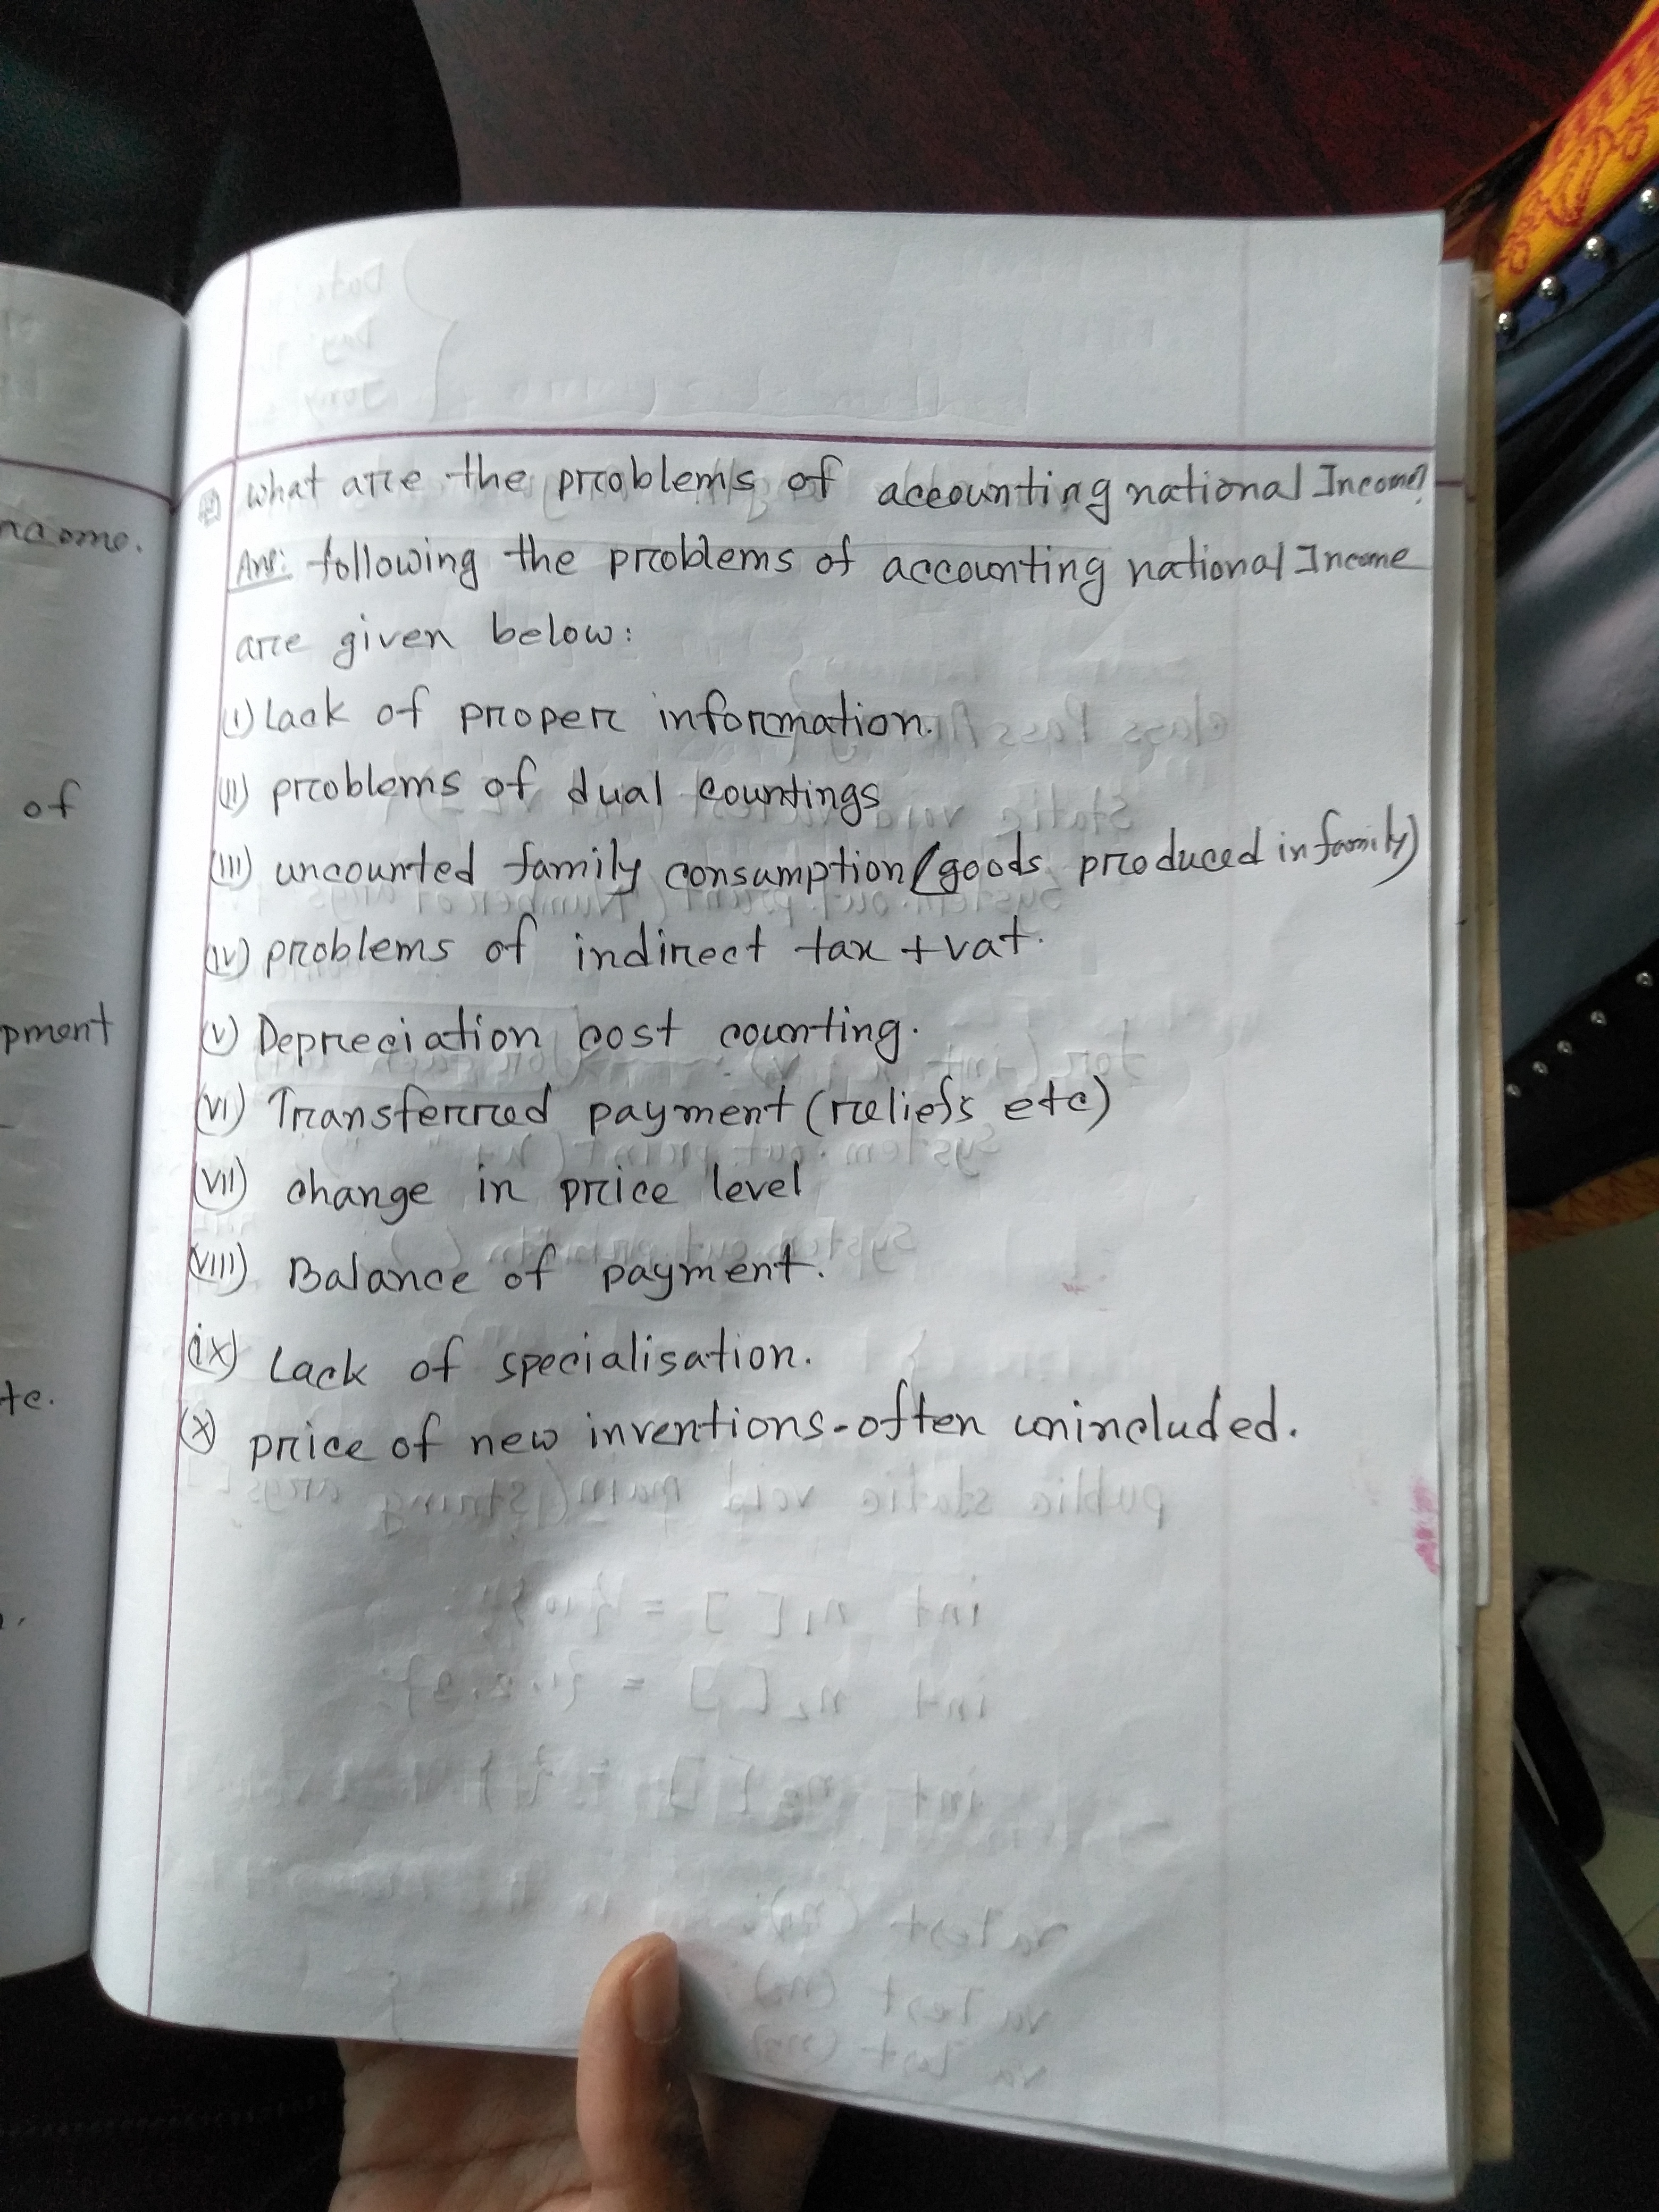 what are the problems of accounting national Income?
Ans: following the problems of accounting national Income
are given below:
(i) Lack of proper information.
(ii) problems of dual countings
(iii) uncounted family consumption (goods produced in family)
(iv) problems of indirect tax + vat.
(v) Depreciation cost counting.
(vi) Transferred payment (reliefs etc)
(vii) change in price level
(viii) Balance of payment.
(ix) Lack of specialisation.
(x) price of new inventions-often unincluded.
of
pment